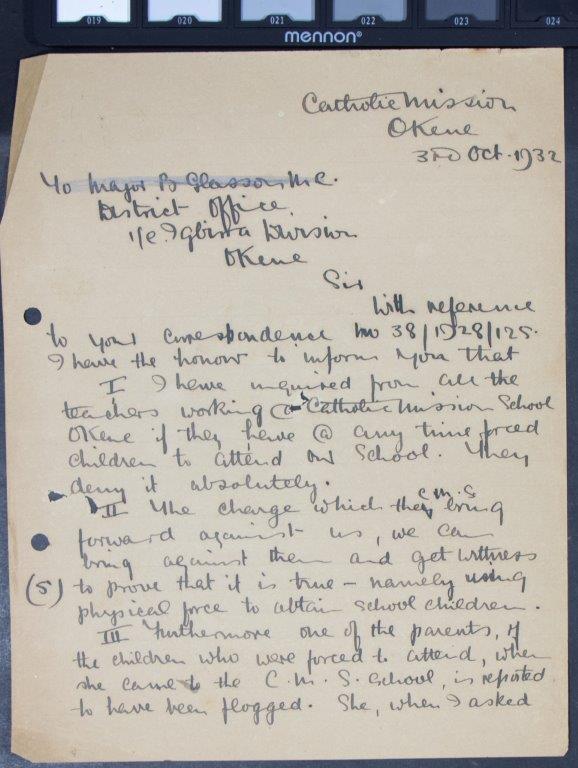 019 020 021 022 023 024
mennon®
Catholic Mission
Okene
3rd Oct. 1932
To Major B Glasson M.C.
District Office
i/c Igbirra Division
Okene
Sir
With reference
to your correspondence no 38/1928/125.
I have the honour to inform you that
I I have inquired from all the
teachers working @ Catholic Mission School
Okene if they have @ any time forced
children to attend our School. They
deny it absolutely.
II The charge which they C.M.S bring
forward against us, we can
bring against them and get witness
(5) to prove that it is true – namely using
physical force to obtain school children.
III Furthermore one of the parents, of
the children who were forced to attend, when
she came to the C.M.S. School, is reported
to have been flogged. She, when I asked